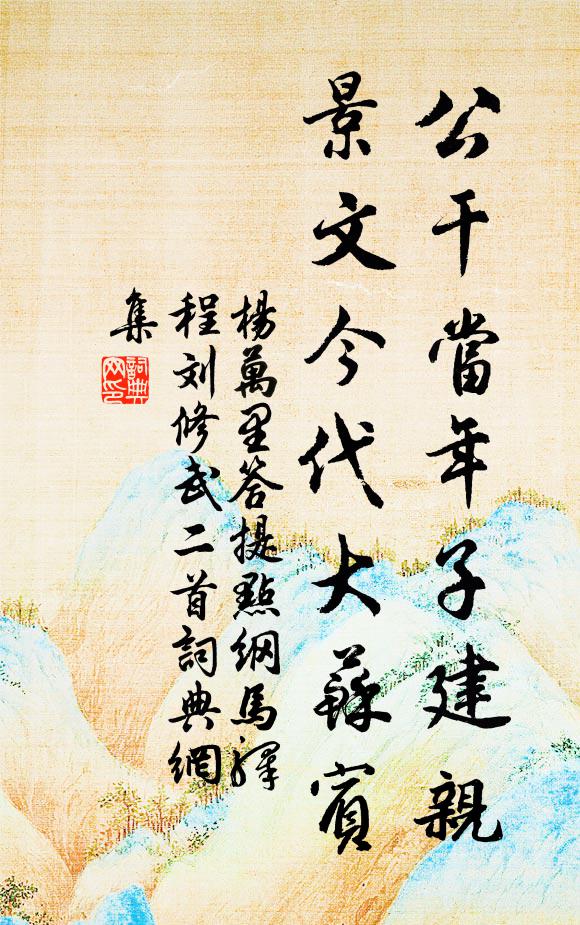 公干當年子建親
景文今代大蘇賓
楊萬里答提點綱馬驛
程刘修武二首詞典網
集
詞典
网印